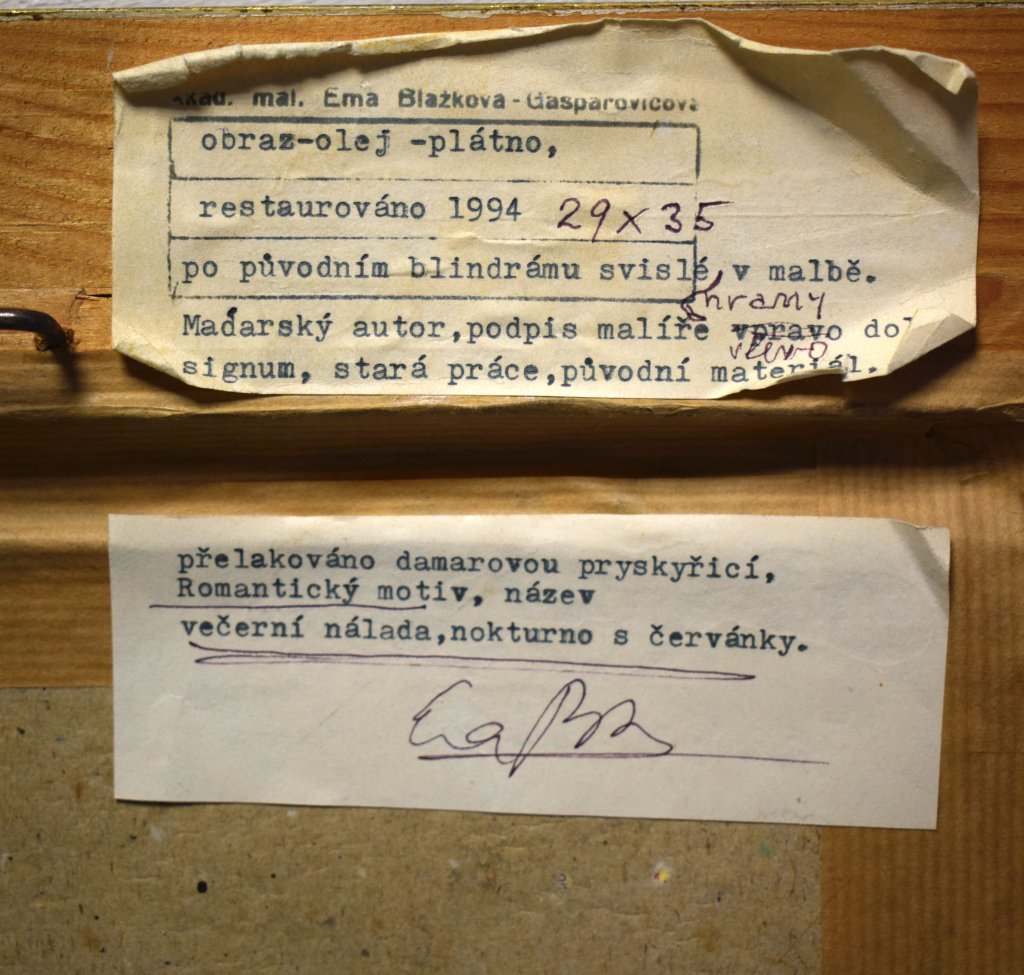 Akad. mal. Ema Blažková-Gasparovičová
obraz-olej -plátno,
restaurováno 1994 29 x 35
po původním blindrámu svislé v malbě.
šhramy
Maďarský autor,podpis malíře vpravo dol
vlevo
signum, stará práce,původní materiál.
přelakováno damarovou pryskyřicí,
Romantický motiv, název
večerní nálada,nokturno s červánky.